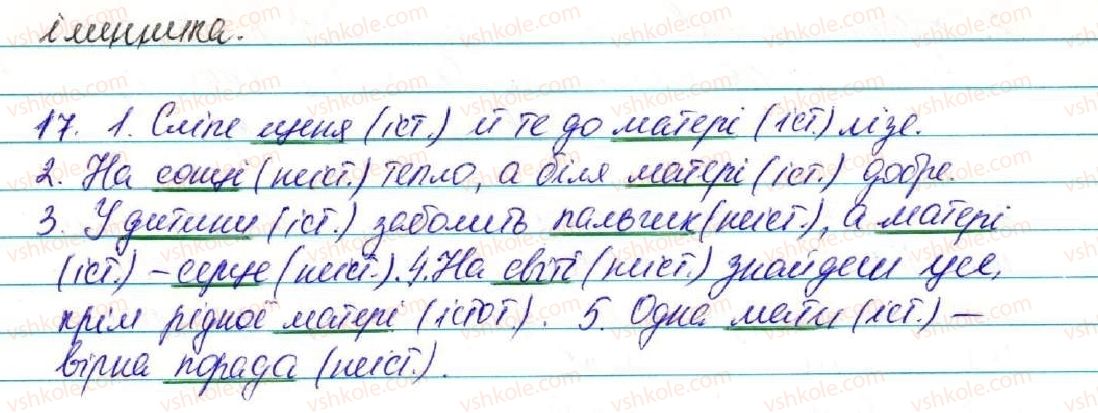 17. 1. Сліпе щеня (іст.) й те до матері (іст.) лізе.
2. На сонці (неіст.) тепло, а біля матері (іст.) добре.
3. У дитини (іст.) заболить пальчик (неіст.), а матері
(іст.) – серце (неіст.). 4. На світі (неіст.) знайдеш усе,
крім рідної матері (істот). 5. Одна мати (іст.) –
вірна порада (неіст.).